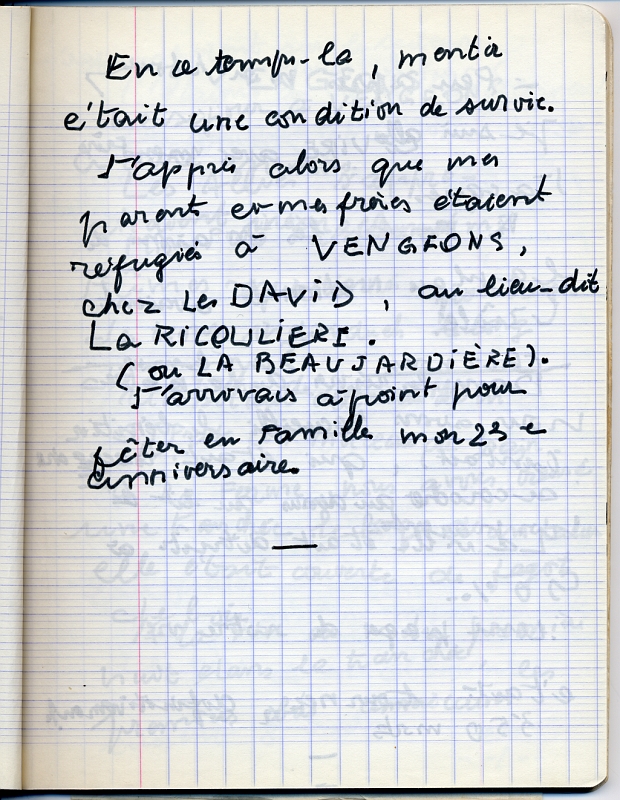 En ce temps-la, mentir
était une condition de survie.
J'appris alors que mes
parent et mes frères étaient
réfugiés à VENGEONS,
chez Les DAVID, au lieu-dit
La RICOULIERE.
(ou LA BEAUJARDIÈRE).
J'arrivais à point pour
fêter en famille mon 23e
anniversaire.